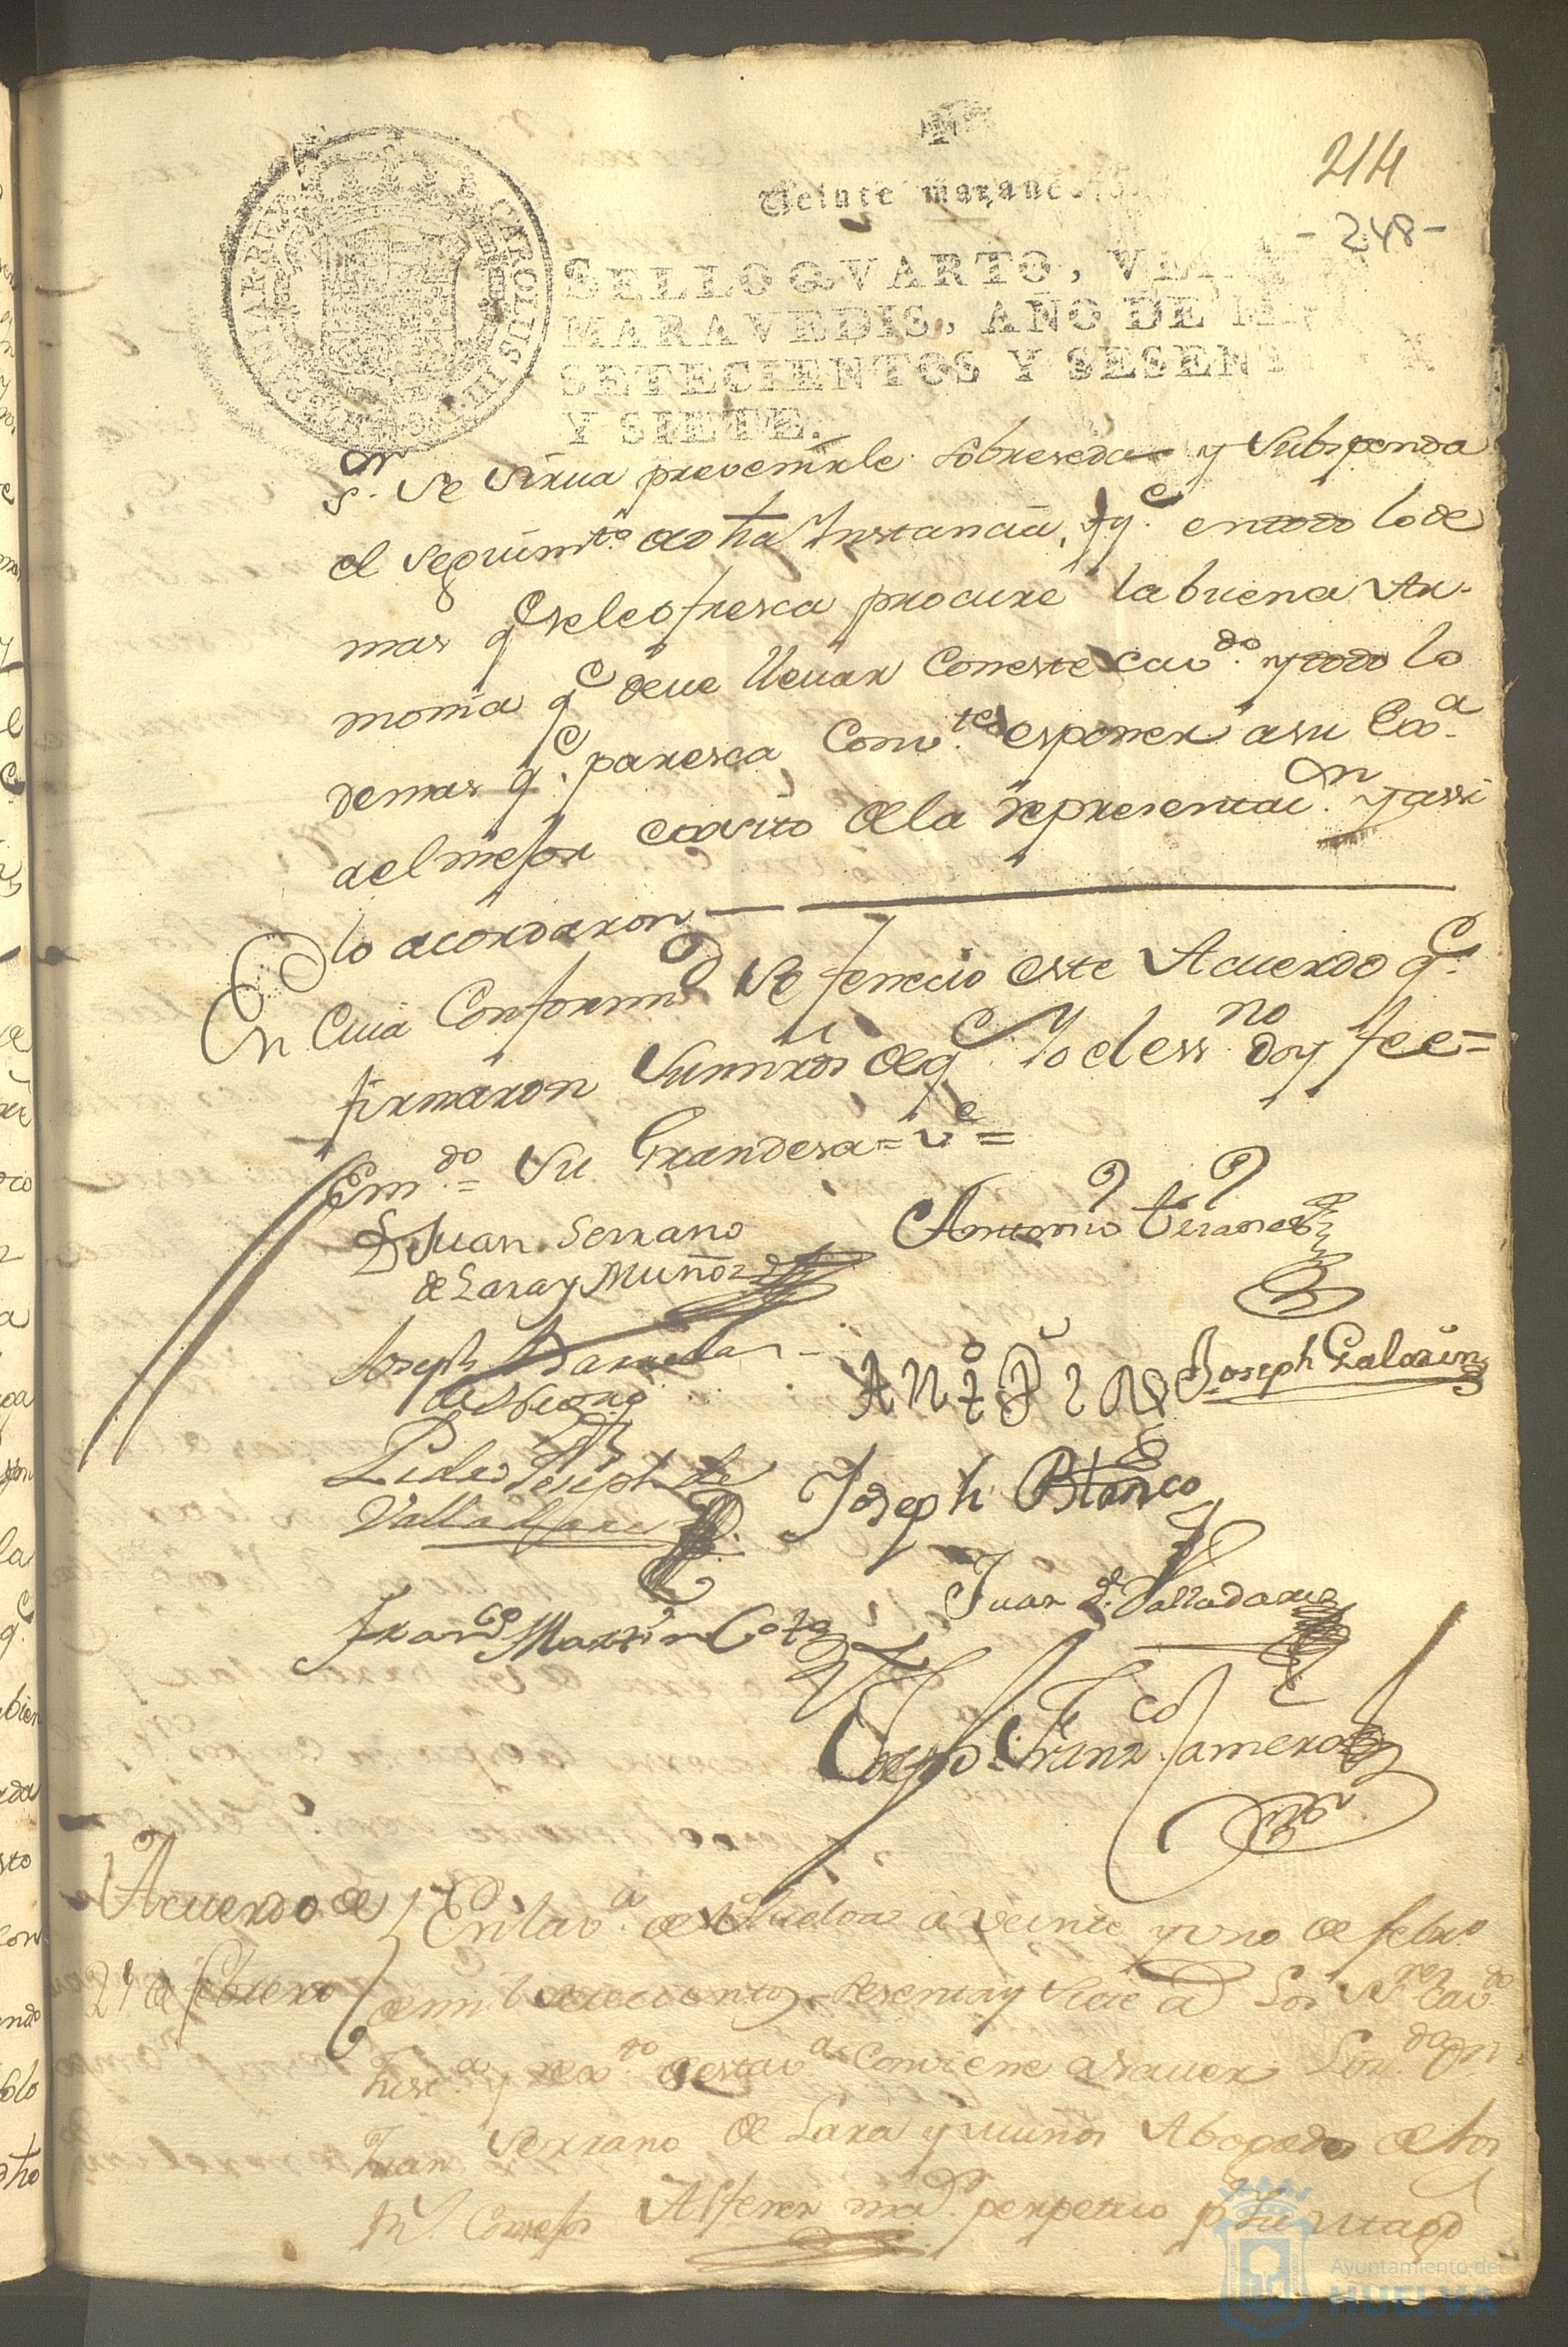 214
- 248 -
Veinte marauedis.
SELLO QVARTO, VEI
MARAVEDIS, AÑO DE M
SETECIENTOS Y SESENT
Y SIETE.
CAROLUS III
sr. se sirua prevenirle sobreseda y subspenda
el seguimto. de dha Instancia, y qe. en todo lo de
mas qe se le ofresca procure la buena Ar-
monia qe deue lleuar con este caudo. y todo lo
demas qe. paresca combte. esponer a su Exa.
del mejor exsito de la representacn. y assi
lo acordaron
En cuia conformd se fenecio este Acuerdo qe.
firmaron sus mrds de qe. Yo el essno. doy fee =
Emdo. = su Grandesa = ve =
D Juan Serrano
de Lara y Muñoz
Antonio
Joseph
Joseph Galarin
Pedro Joseph de
Valladares
Joseph Blanco
Juan d. Valladares
Franco Martin Coto
Diego Franco. Camero
Acuerdo de
21 de febrero
En la va. de Huelva a veinte y uno de febro
de mil setecientos sesenta y siete a Los Sres Cavdo
Justa. y rexto. de esta va. conviene a sauer Lizdo. Dn.
Juan Serrano de Lara y muños Abogado de los
Rs. Consejos Alferez maor. perpetuo pr su
Ayuntamiento de
HUELVA